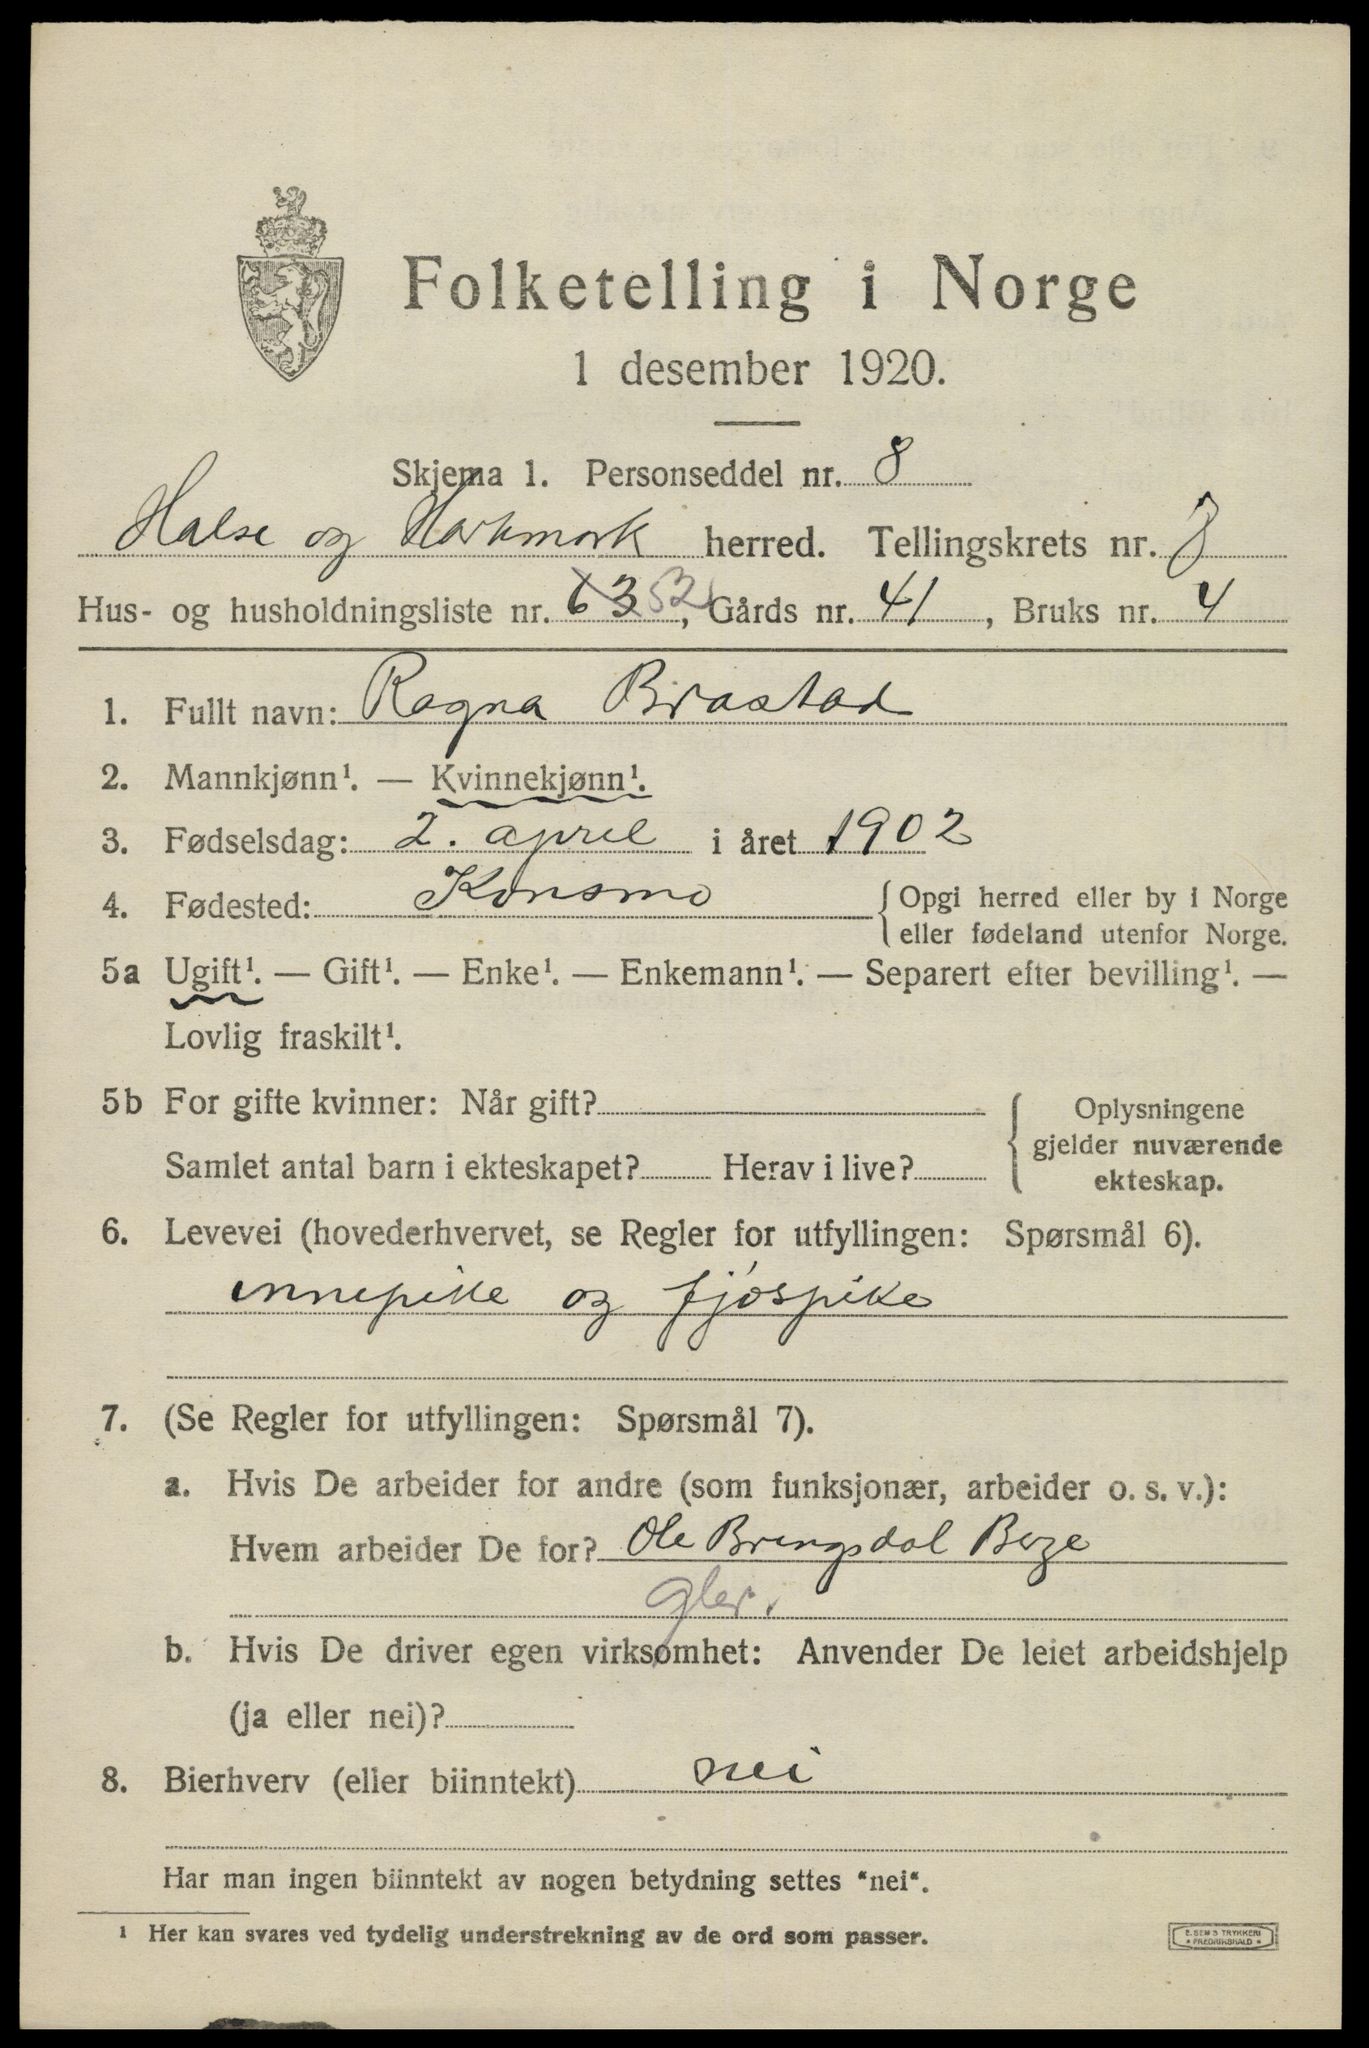 Folketelling i Norge
1 desember 1920.
Skjema 1. Personseddel nr. 8
Halse og Harkmark herred. Tellingskrets nr. 8
Hus- og husholdningsliste nr. 63 52, Gårds nr. 41, Bruks nr. 4
1. Fullt navn: Ragna Brastad
2. Mannkjønn¹. — Kvinnekjønn¹.
3. Fødselsdag: 2. april i året 1902
4. Fødested: Konsmo { Opgi herred eller by i Norge
eller fødeland utenfor Norge.
5a Ugift¹. — Gift¹. — Enke¹. — Enkemann¹. — Separert efter bevilling¹. —
Lovlig fraskilt¹.
5b For gifte kvinner: Når gift?
Samlet antal barn i ekteskapet? Herav i live?
{ Oplysningene
gjelder nuværende
ekteskap.
6. Levevei (hovederhvervet, se Regler for utfyllingen: Spørsmål 6).
innepike og fjøspike
7. (Se Regler for utfyllingen: Spørsmål 7).
a. Hvis De arbeider for andre (som funksjonær, arbeider o. s. v.):
Hvem arbeider De for? Ole Bringsdal Berge
b. Hvis De driver egen virksomhet: Anvender De leiet arbeidshjelp
(ja eller nei)?
8. Bierhverv (eller biinntekt) nei
Har man ingen biinntekt av nogen betydning settes "nei".
¹ Her kan svares ved tydelig understrekning av de ord som passer.
E. SEM'S TRYKKERI
* FREDRIKSHALD *